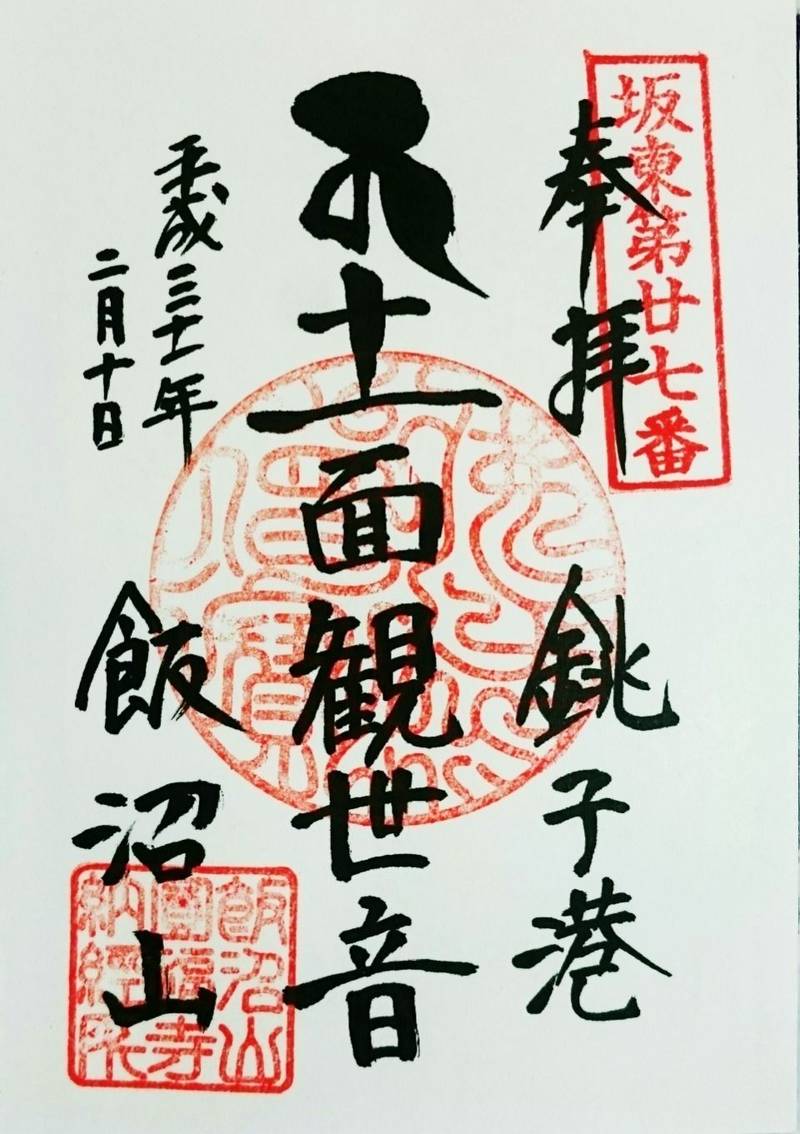 坂東第廿七番
奉拝
銚子港
十一面観世音
平成三十一年
二月十日
飯沼山
飯沼山
圓福寺
納經所